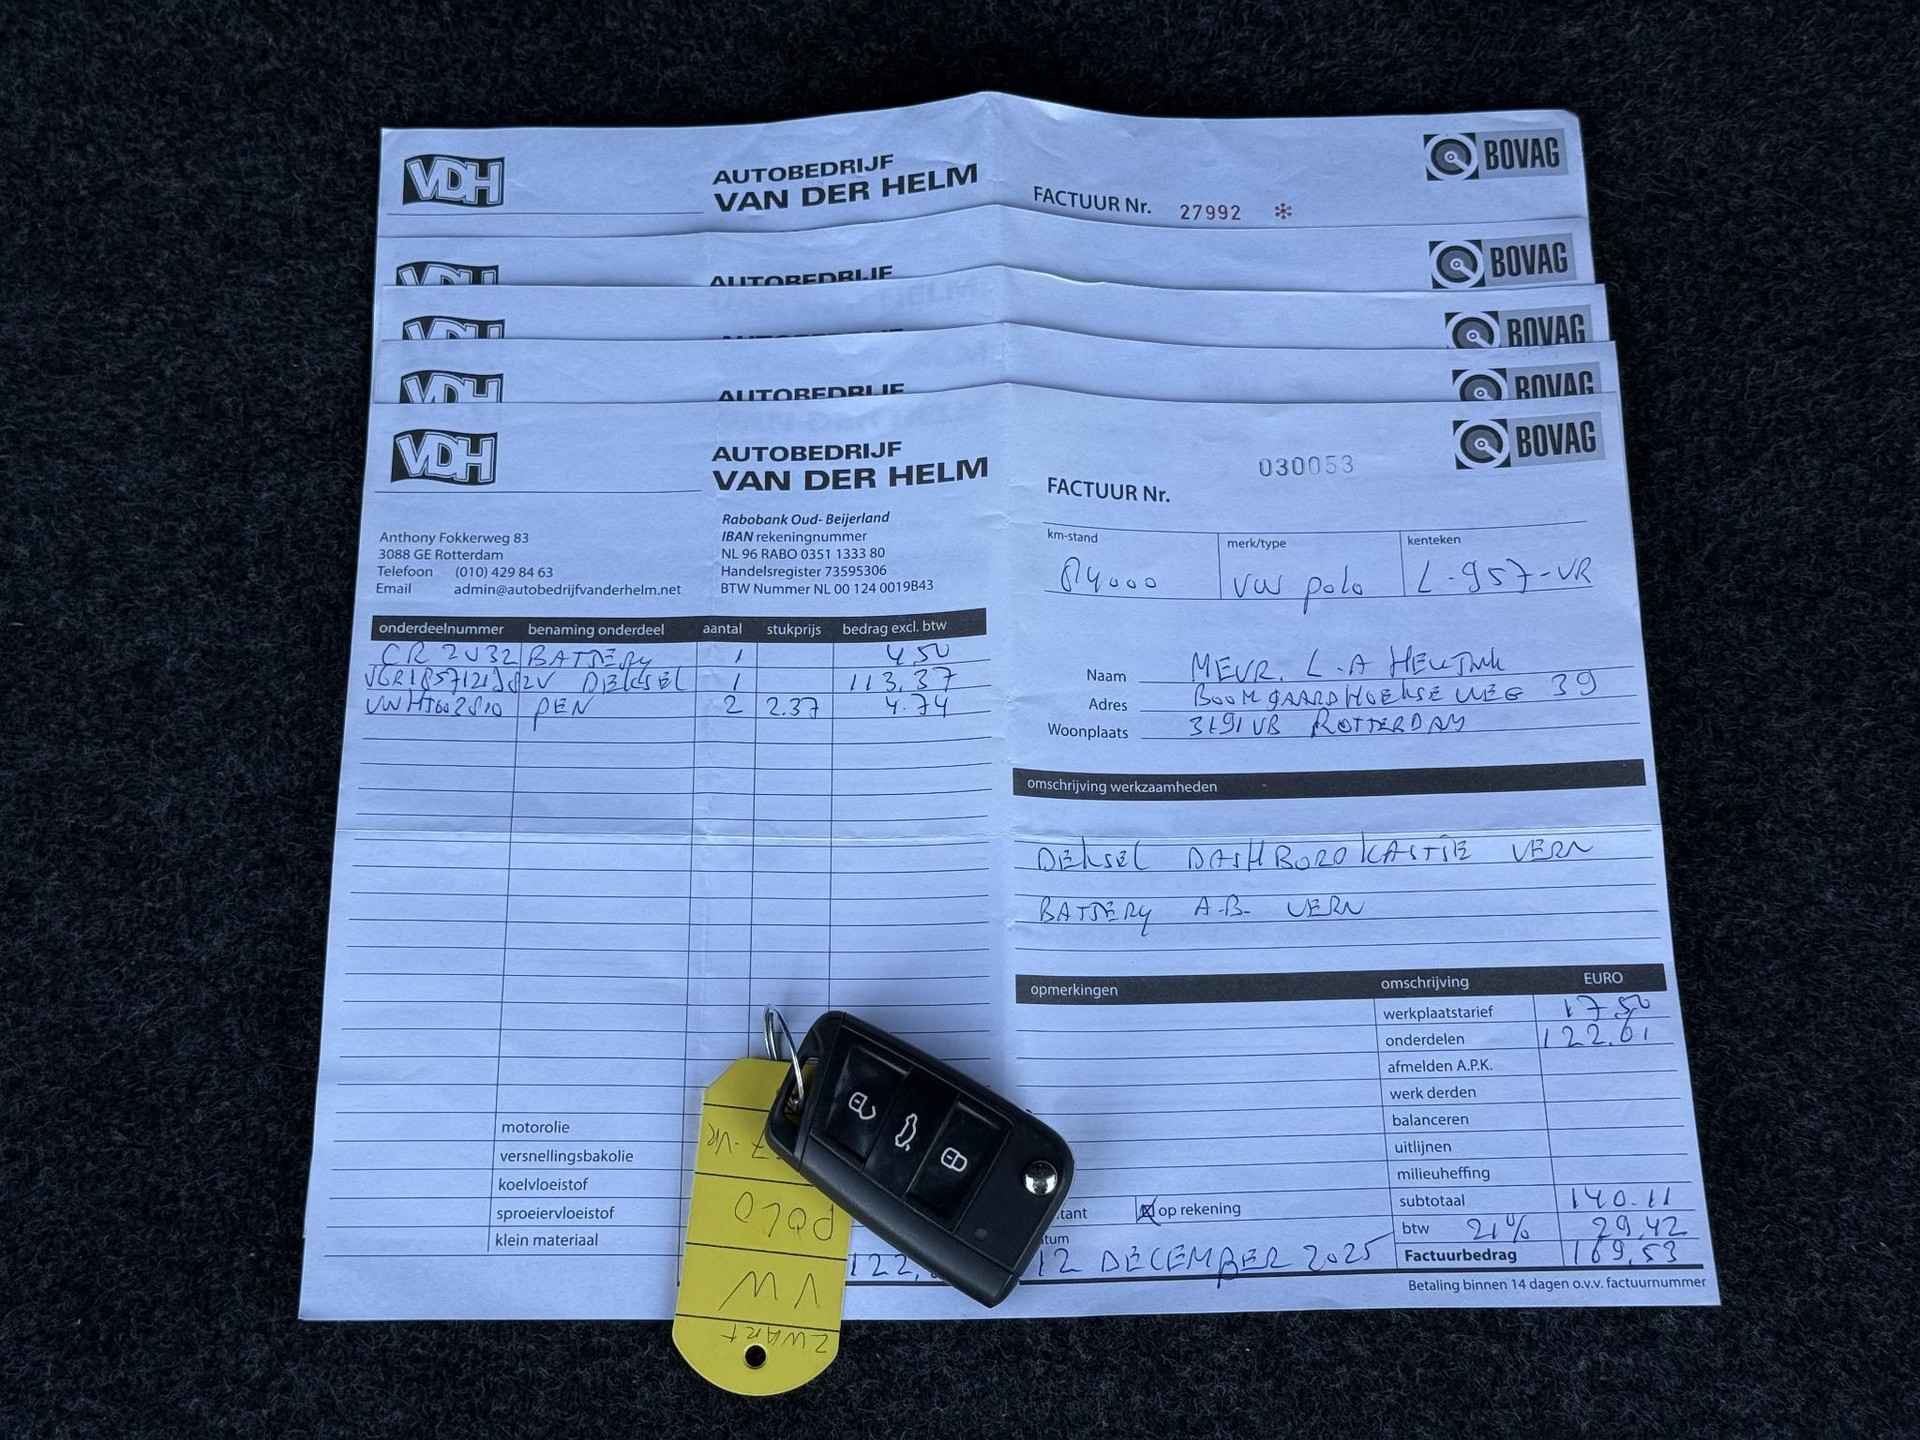 VDH
AUTOBEDRIJF
VAN DER HELM
FACTUUR Nr. 27992 *
BOVAG
VDH
AUTOBEDRIJF
BOVAG
VDH
BOVAG
VDH
AUTOBEDRIJF
BOVAG
VDH
AUTOBEDRIJF
VAN DER HELM
FACTUUR Nr.
030053
BOVAG
Anthony Fokkerweg 83
3088 GE Rotterdam
Telefoon (010) 429 84 63
Email admin@autobedrijfvanderhelm.net
Rabobank Oud- Beijerland
IBAN rekeningnummer
NL 96 RABO 0351 1333 80
Handelsregister 73595306
BTW Nummer NL 00 124 0019B43
km-stand merk/type kenteken
84000 VW polo L-957-VR
onderdeelnummer benaming onderdeel aantal stukprijs bedrag excl. btw
CR 2032 BATTERY 1 4.50
DEKSEL 1 113,37
PEN 2 2.37 4.74
Naam MEVR. L.A
Adres BOOMGAARDHOEKSEWEG 39
Woonplaats 3191VB ROTTERDAM
omschrijving werkzaamheden
DEKSEL DASHBORDKASTJE VERN
BATTERY A.B. VERN
opmerkingen omschrijving EURO
werkplaatstarief 17,50
onderdelen 122.61
afmelden A.P.K.
werk derden
balanceren
uitlijnen
milieuheffing
subtotaal 140.11
btw 21% 29,42
Factuurbedrag 169,53
Betaling binnen 14 dagen o.v.v. factuurnummer
motorolie
versnellingsbakolie
koelvloeistof
sproeiervloeistof
klein materiaal
tant op rekening
tum
122, 12 DECEMBER 2025
7-VR
POLO
VW
ZWART